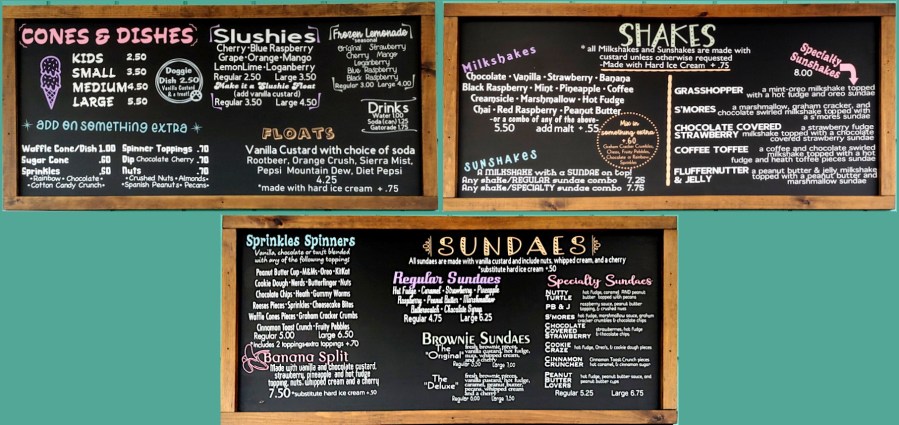 CONES & DISHES
KIDS 2.50
SMALL 3.50
MEDIUM 4.50
LARGE 5.50
Doggie
Dish 2.50
Vanilla Custard
& a treat!
ADD ON SOMETHING EXTRA
Waffle Cone/Dish 1.00
Sugar Cone .60
Sprinkles .50
•Rainbow•Chocolate•
•Cotton Candy Crunch•
Spinner Toppings .70
Dip Chocolate Cherry .70
Nuts .70
•Crushed Nuts•Almonds•
•Spanish Peanuts•Pecans•
Slushies
Cherry•Blue Raspberry
Grape•Orange•Mango
LemonLime•Loganberry
Regular 2.50 Large 3.50
Make it a Slushie Float
(add vanilla custard)
Regular 3.50 Large 4.50
Frozen Lemonade
*seasonal
Original Strawberry
Cherry Mango
Loganberry
Blue Raspberry
Black Raspberry
Regular 3.00 Large 4.00
Drinks
Water 1.00
Soda (can) 1.25
Gatorade 1.75
FLOATS
Vanilla Custard with choice of soda
Rootbeer, Orange Crush, Sierra Mist,
Pepsi Mountain Dew, Diet Pepsi
4.25
*made with hard ice cream + .75
SHAKES
* all Milkshakes and Sunshakes are made with
custard unless otherwise requested
-Made with Hard Ice Cream + .75
Milkshakes
Chocolate • Vanilla • Strawberry • Banana
Black Raspberry • Mint • Pineapple • Coffee
Creamsicle • Marshmallow • Hot Fudge
Chai • Red Raspberry • Peanut Butter
-or a combo of any of the above-
5.50 add malt + .55
Mix in
something extra
+ .60
Graham Cracker Crumbles,
Oreos, Fruity Pebbles,
Chocolate or Rainbow
Sprinkles
SUNSHAKES
A MILKSHAKE with a SUNDAE on top!
Any shake/REGULAR sundae combo 7.25
Any shake/SPECIALTY sundae combo 7.75
Specialty
Sunshakes
8.00
GRASSHOPPER a mint-oreo milkshake topped
with a hot fudge and oreo sundae
S'MORES a marshmallow, graham cracker, and
chocolate swirled milkshake topped with
a s'mores sundae
CHOCOLATE COVERED STRAWBERRY a strawberry fudge
milkshake topped with a chocolate
covered strawberry sundae
COFFEE TOFFEE a coffee and chocolate swirled
milkshake topped with a hot
fudge and heath toffee pieces sundae
FLUFFERNUTTER & JELLY a peanut butter & jelly milkshake
topped with a peanut butter and
marshmallow sundae
Sprinkles Spinners
Vanilla, chocolate or twist blended
with any of the following toppings
Peanut Butter Cup•M&Ms•Oreo•KitKat
Cookie Dough•Nerds•Butterfinger•Nuts
Chocolate Chips•Heath•Gummy Worms
Reeses Pieces•Sprinkles•Cheesecake Bites
Waffle Cone Pieces•Graham Cracker Crumbs
Cinnamon Toast Crunch•Fruity Pebbles
Regular 5.00 Large 6.50
*Includes 2 toppings•extra toppings +.70
Banana Split
Made with vanilla and chocolate custard,
strawberry, pineapple and hot fudge
topping, nuts, whipped cream and a cherry
7.50 *substitute hard ice cream +.50
SUNDAES
All sundaes are made with vanilla custard and include nuts, whipped cream, and a cherry
*substitute hard ice cream +.50
Regular Sundaes
Hot Fudge • Caramel • Strawberry • Pineapple
Raspberry • Peanut Butter • Marshmallow
Butterscotch • Chocolate Syrup
Regular 4.75 Large 6.25
BROWNIE SUNDAES
The "Original"
fresh brownie pieces,
vanilla custard, hot fudge,
nuts, whipped cream,
and a cherry
The "Deluxe"
fresh brownie pieces,
vanilla custard, hot fudge,
caramel, peanut butter,
pecans, whipped cream
and a cherry
Regular 6.00 Large 7.50
Specialty Sundaes
NUTTY TURTLE hot fudge, caramel AND peanut
butter topped with pecans
PB & J raspberry sauce, peanut butter
topping, & crushed nuts
S'MORES hot fudge, marshmallow sauce, graham
cracker crumbles & chocolate chips
CHOCOLATE COVERED STRAWBERRY strawberries, hot fudge
& chocolate chips
COOKIE CRAZE hot fudge, Oreo's, & cookie dough pieces
CINNAMON CRUNCHER Cinnamon Toast Crunch pieces
hot caramel, & cinnamon sugar
PEANUT BUTTER LOVERS hot fudge, peanut butter sauce, and
peanut butter cups
Regular 5.25 Large 6.75